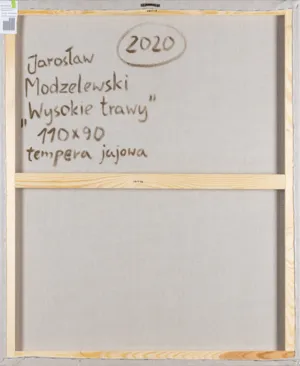 2020
Jarosław
Modzelewski
"Wysokie trawy"
110x90
tempera jajowa